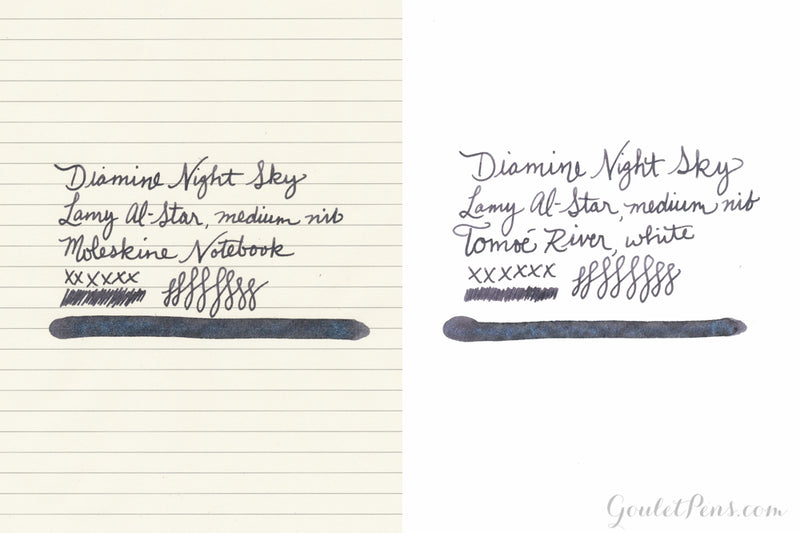 Diamine Night Sky
Lamy Al-Star, medium nib
Moleskine Notebook
xx xxxx
Diamine Night Sky
Lamy Al-Star, medium nib
Tomoé River, white
xx xxxx
GouletPens.com